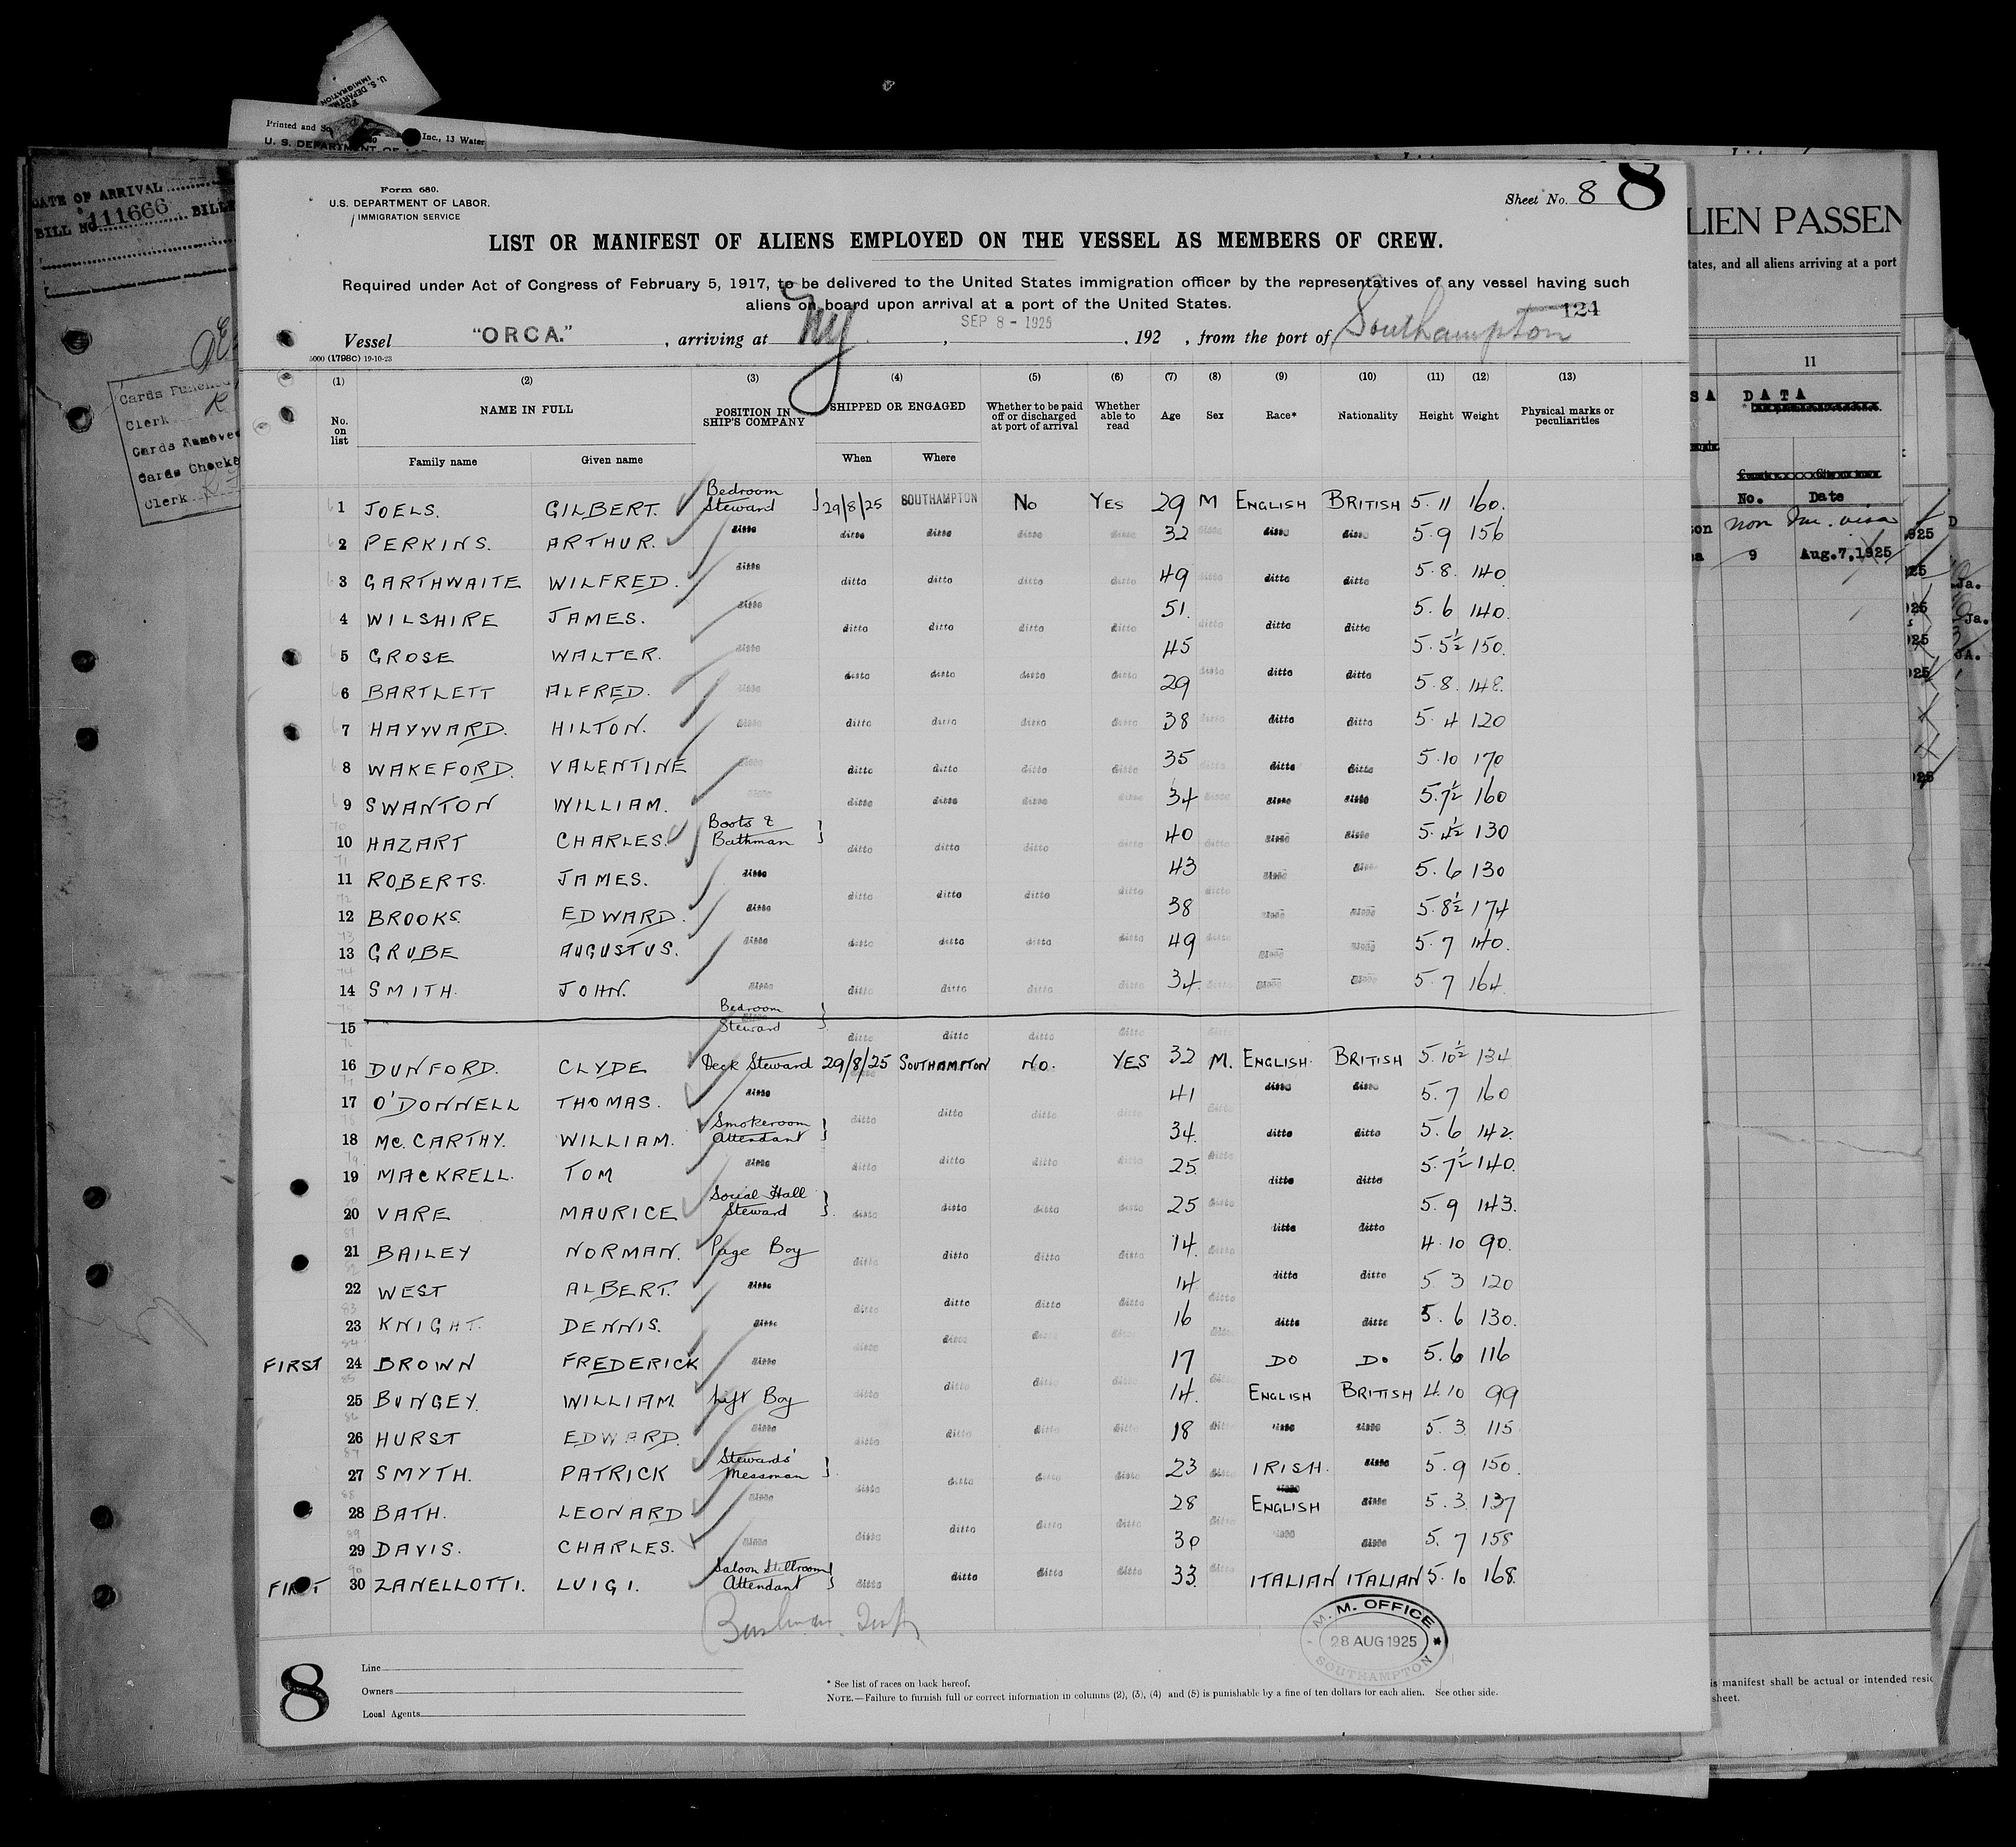 U. S. DEPARTMENT
IMMIGRATION
Printed and So
Inc., 13 Water
U. S. DEPARTMENT OF
DATE OF ARRIVAL
BILL No. 111666 BILL
Cards Punched
Clerk
Cards Removed
Cards Checke
Clerk
Form 680.
U.S. DEPARTMENT OF LABOR.
IMMIGRATION SERVICE
Sheet No. 8 8
LIST OR MANIFEST OF ALIENS EMPLOYED ON THE VESSEL AS MEMBERS OF CREW.
Required under Act of Congress of February 5, 1917, to be delivered to the United States immigration officer by the representatives of any vessel having such
aliens on board upon arrival at a port of the United States.
124
Vessel "ORCA." , arriving at NY , SEP 8 - 1925 , 192 , from the port of Southampton
5000 (1798C) 19-10-23
(1) (2) (3) (4) (5) (6) (7) (8) (9) (10) (11) (12) (13)
No. on list NAME IN FULL POSITION IN SHIP'S COMPANY SHIPPED OR ENGAGED Whether to be paid off or discharged at port of arrival Whether able to read Age Sex Race* Nationality Height Weight Physical marks or peculiarities
Family name Given name When Where
1 JOELS. GILBERT. Bedroom Steward } 29/8/25 SOUTHAMPTON No YES 29 M ENGLISH BRITISH 5.11 160.
2 PERKINS. ARTHUR. ditto ditto ditto ditto ditto 32 ditto ditto ditto 5.9 156
3 GARTHWAITE WILFRED. ditto ditto ditto ditto ditto 49 ditto ditto ditto 5.8. 140.
4 WILSHIRE JAMES. ditto ditto ditto ditto ditto 51. ditto ditto ditto 5.6 140.
5 GROSE WALTER. ditto ditto ditto ditto ditto 45 ditto ditto ditto 5.5½ 150.
6 BARTLETT ALFRED. ditto 29 5.8. 148.
7 HAYWARD. HILTON. ditto ditto ditto ditto ditto 38 ditto ditto ditto 5.4 120
8 WAKEFORD. VALENTINE ditto ditto ditto ditto ditto 35 ditto ditto ditto 5.10 170
9 SWANTON WILLIAM. ditto ditto ditto ditto ditto 34 ditto ditto ditto 5.7½ 160
10 HAZART CHARLES. Boots & Bathman } ditto ditto ditto ditto 40 ditto ditto ditto 5.4½ 130
11 ROBERTS. JAMES. ditto ditto ditto ditto ditto 43 ditto ditto ditto 5.6 130
12 BROOKS. EDWARD. ditto 38 ditto ditto 5.8½ 174
13 GRUBE AUGUSTUS. ditto ditto ditto ditto ditto 49 ditto ditto ditto 5.7 140.
14 SMITH. JOHN. ditto ditto ditto ditto ditto 34. ditto ditto ditto 5.7 164
15 Bedroom Steward } ditto ditto ditto ditto ditto
16 DUNFORD. CLYDE Deck Steward 29/8/25 SOUTHAMPTON No. YES 32 M. ENGLISH. BRITISH 5.10½ 134
17 O'DONNELL THOMAS. ditto ditto ditto ditto ditto 41 ditto ditto ditto 5.7 160
18 Mc.CARTHY. WILLIAM. Smokeroom Attendant } 34. ditto ditto 5.6 142.
19 MACKRELL. TOM ditto ditto ditto ditto ditto 25. ditto ditto ditto 5.7½ 140.
20 VARE MAURICE Social Hall Steward } ditto ditto ditto ditto 25 ditto ditto ditto 5.9 143.
21 BAILEY NORMAN. Page Boy ditto ditto ditto ditto 14. ditto 4.10 90.
22 WEST ALBERT. ditto ditto ditto ditto ditto 14 ditto ditto ditto 5 3 120
23 KNIGHT. DENNIS. ditto ditto ditto ditto ditto 16 ditto ditto ditto 5.6 130.
FIRST 24 BROWN FREDERICK ditto 17 DO Do 5.6 116
25 BUNGEY. WILLIAM. Lift Boy ditto ditto ditto ditto 14. ditto ENGLISH BRITISH 4.10 99
26 HURST EDWARD. ditto ditto ditto ditto ditto 18 ditto ditto ditto 5.3 115
27 SMYTH. PATRICK Stewards' Messman } ditto ditto ditto ditto 23 ditto IRISH. ditto 5.9 150.
28 BATH. LEONARD ditto 28 ENGLISH ditto 5.3. 137
29 DAVIS. CHARLES. ditto ditto ditto ditto ditto 30 ditto ditto ditto 5.7 158
FIRST 30 ZANELLOTTI. LUIGI. Saloon Stillroom Attendant } ditto ditto ditto ditto 33. ditto ITALIAN ITALIAN 5.10 168.
M. M. OFFICE
28 AUG 1925
SOUTHAMPTON
8
Line
Owners
Local Agents
* See list of races on back hereof.
NOTE.—Failure to furnish full or correct information in columns (2), (3), (4) and (5) is punishable by a fine of ten dollars for each alien. See other side.
LIEN PASSEN
tates, and all aliens arriving at a port
11
SA DATA
No. Date
non Im. visa
9 Aug.7,1925
925
Ja.
Ja.
is manifest shall be actual or intended resid
sheet.